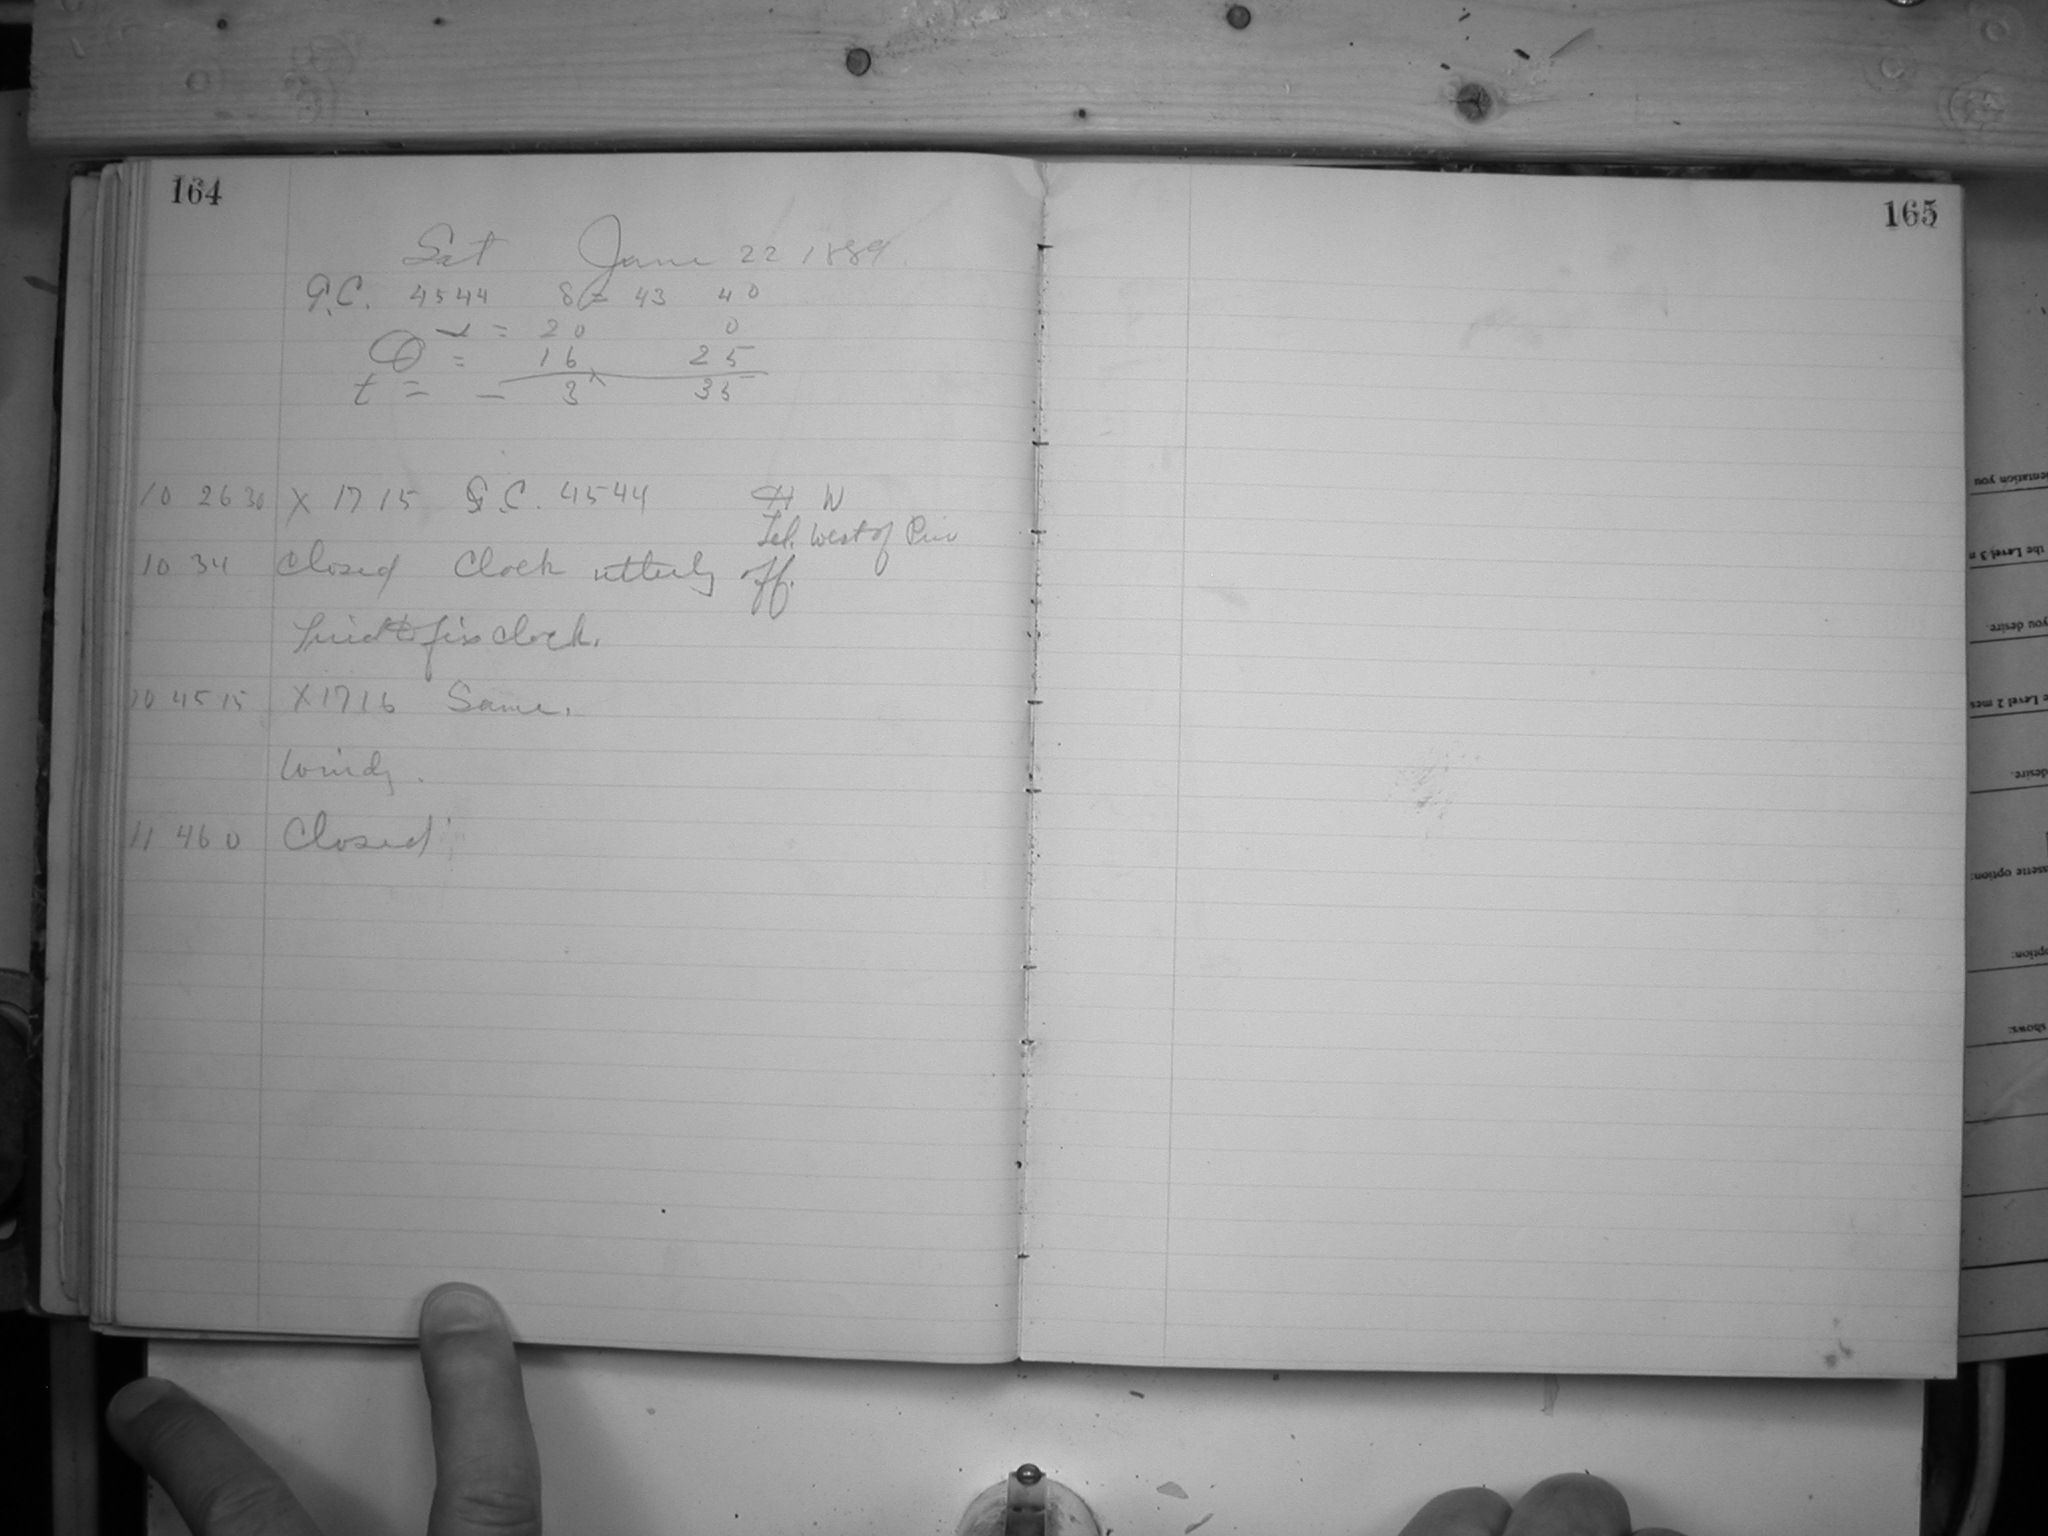 164
Sat June 22 1889
G.C. 4544 δ = 43 40
α = 20 0
θ = 16 25
t = - 3 35
10 26 30 X 1715 G.C. 4544 H W
Tel. West of Pier
10 34 Closed Clock utterly off.
Tried to fix clock.
10 45 15 X 1716 Same.
Windy.
11 46 0 Closed
165
entation you
the Level 3 m
you desire.
e Level 2 mes
desire.
ssette option:
option:
shows: